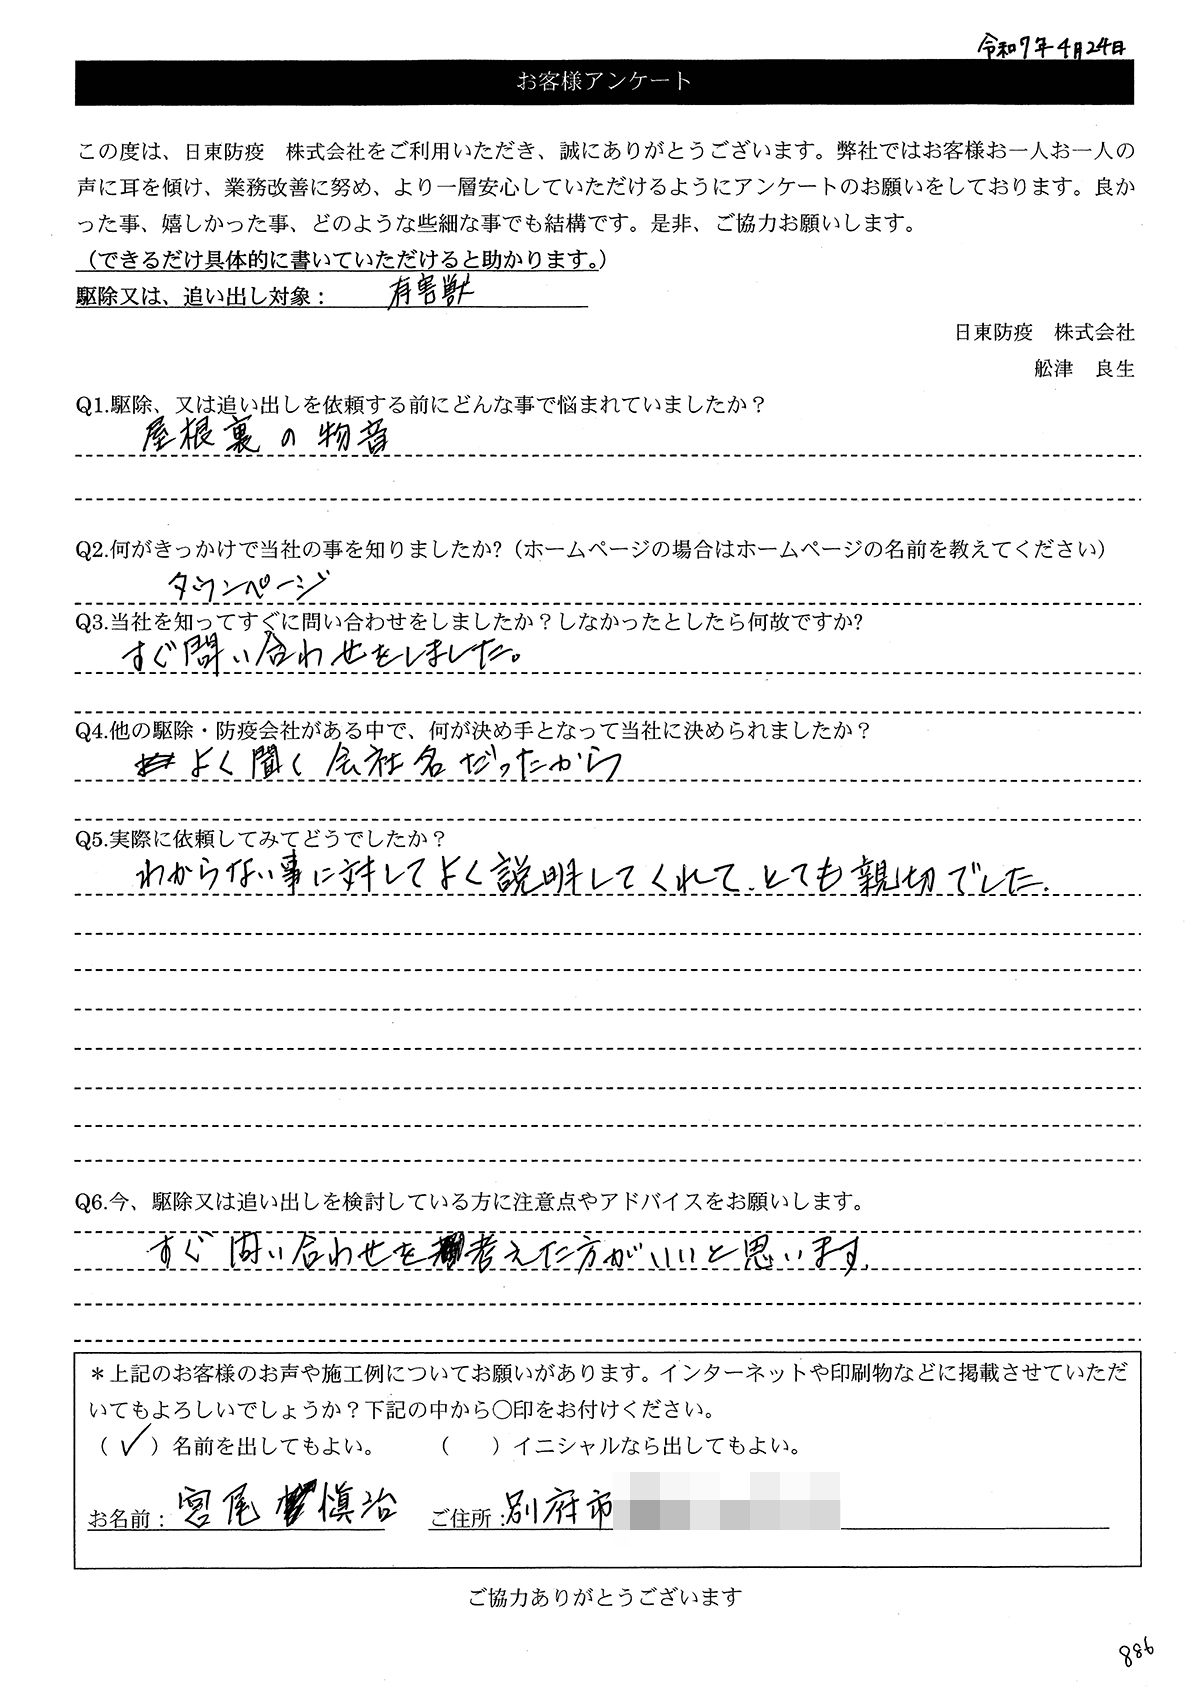 令和7年4月24日
お客様アンケート
この度は、日東防疫　株式会社をご利用いただき、誠にありがとうございます。弊社ではお客様お一人お一人の
声に耳を傾け、業務改善に努め、より一層安心していただけるようにアンケートのお願いをしております。良か
った事、嬉しかった事、どのような些細な事でも結構です。是非、ご協力お願いします。
（できるだけ具体的に書いていただけると助かります。）
駆除又は、追い出し対象： 有害獣
日東防疫　株式会社
舩津　良生
Q1.駆除、又は追い出しを依頼する前にどんな事で悩まれていましたか？
屋根裏の物音
Q2.何がきっかけで当社の事を知りましたか?（ホームページの場合はホームページの名前を教えてください）
タウンページ
Q3.当社を知ってすぐに問い合わせをしましたか？しなかったとしたら何故ですか?
すぐ問い合わせをしました。
Q4.他の駆除・防疫会社がある中で、何が決め手となって当社に決められましたか？
よく聞く会社名だったから
Q5.実際に依頼してみてどうでしたか？
わからない事に対してよく説明してくれて、とても親切でした。
Q6.今、駆除又は追い出しを検討している方に注意点やアドバイスをお願いします。
すぐ問い合わせを考えた方がいいと思います。
＊上記のお客様のお声や施工例についてお願いがあります。インターネットや印刷物などに掲載させていただ
いてもよろしいでしょうか？下記の中から〇印をお付けください。
（✓）名前を出してもよい。　（　）イニシャルなら出してもよい。
お名前：宮尾 慎治　ご住所：別府市
ご協力ありがとうございます
886